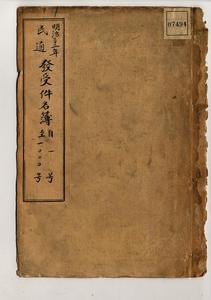 明治三十三年
民適發受件名簿
自一号
至一〇〇〇号
07494